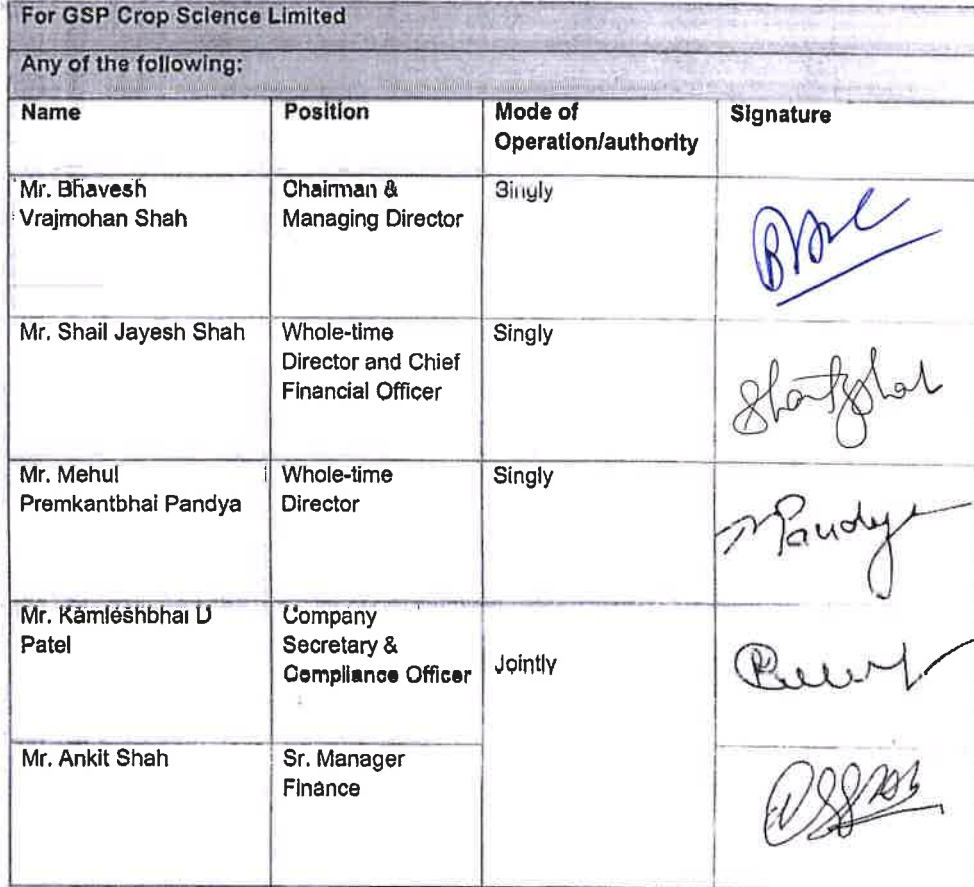 For GSP Crop Science Limited
Any of the following:
Name Position Mode of Operation/authority Signature
Mr. Bhavesh Vrajmohan Shah Chairman & Managing Director Singly
Mr. Shail Jayesh Shah Whole-time Director and Chief Financial Officer Singly
Mr. Mehul Premkantbhai Pandya Whole-time Director Singly Pandya
Mr. Kamleshbhai D Patel Company Secretary & Compliance Officer Jointly
Mr. Ankit Shah Sr. Manager Finance